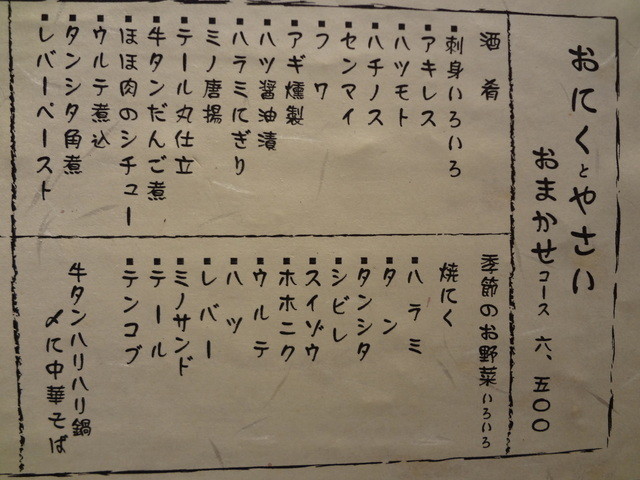 おにくとやさい
おまかせコース 六、五〇〇
酒肴
■刺身いろいろ
■アキレス
■ハツモト
■ハチノス
■センマイ
■フワ
■アギ燻製
■ハツ醤油漬
■ハラミにぎり
■ミノ唐揚
■テール丸仕立
■牛タンだんご煮
■ほほ肉のシチュー
■ウルテ煮込
■タンシタ角煮
■レバーペースト
季節のお野菜いろいろ
焼にく
■ハラミ
■タン
■タンシタ
■シビレ
■スイゾウ
■ホホニク
■ウルテ
■ハツ
■レバー
■ミノサンド
■テール
■テンコブ
牛タンハリハリ鍋
〆に中華そば